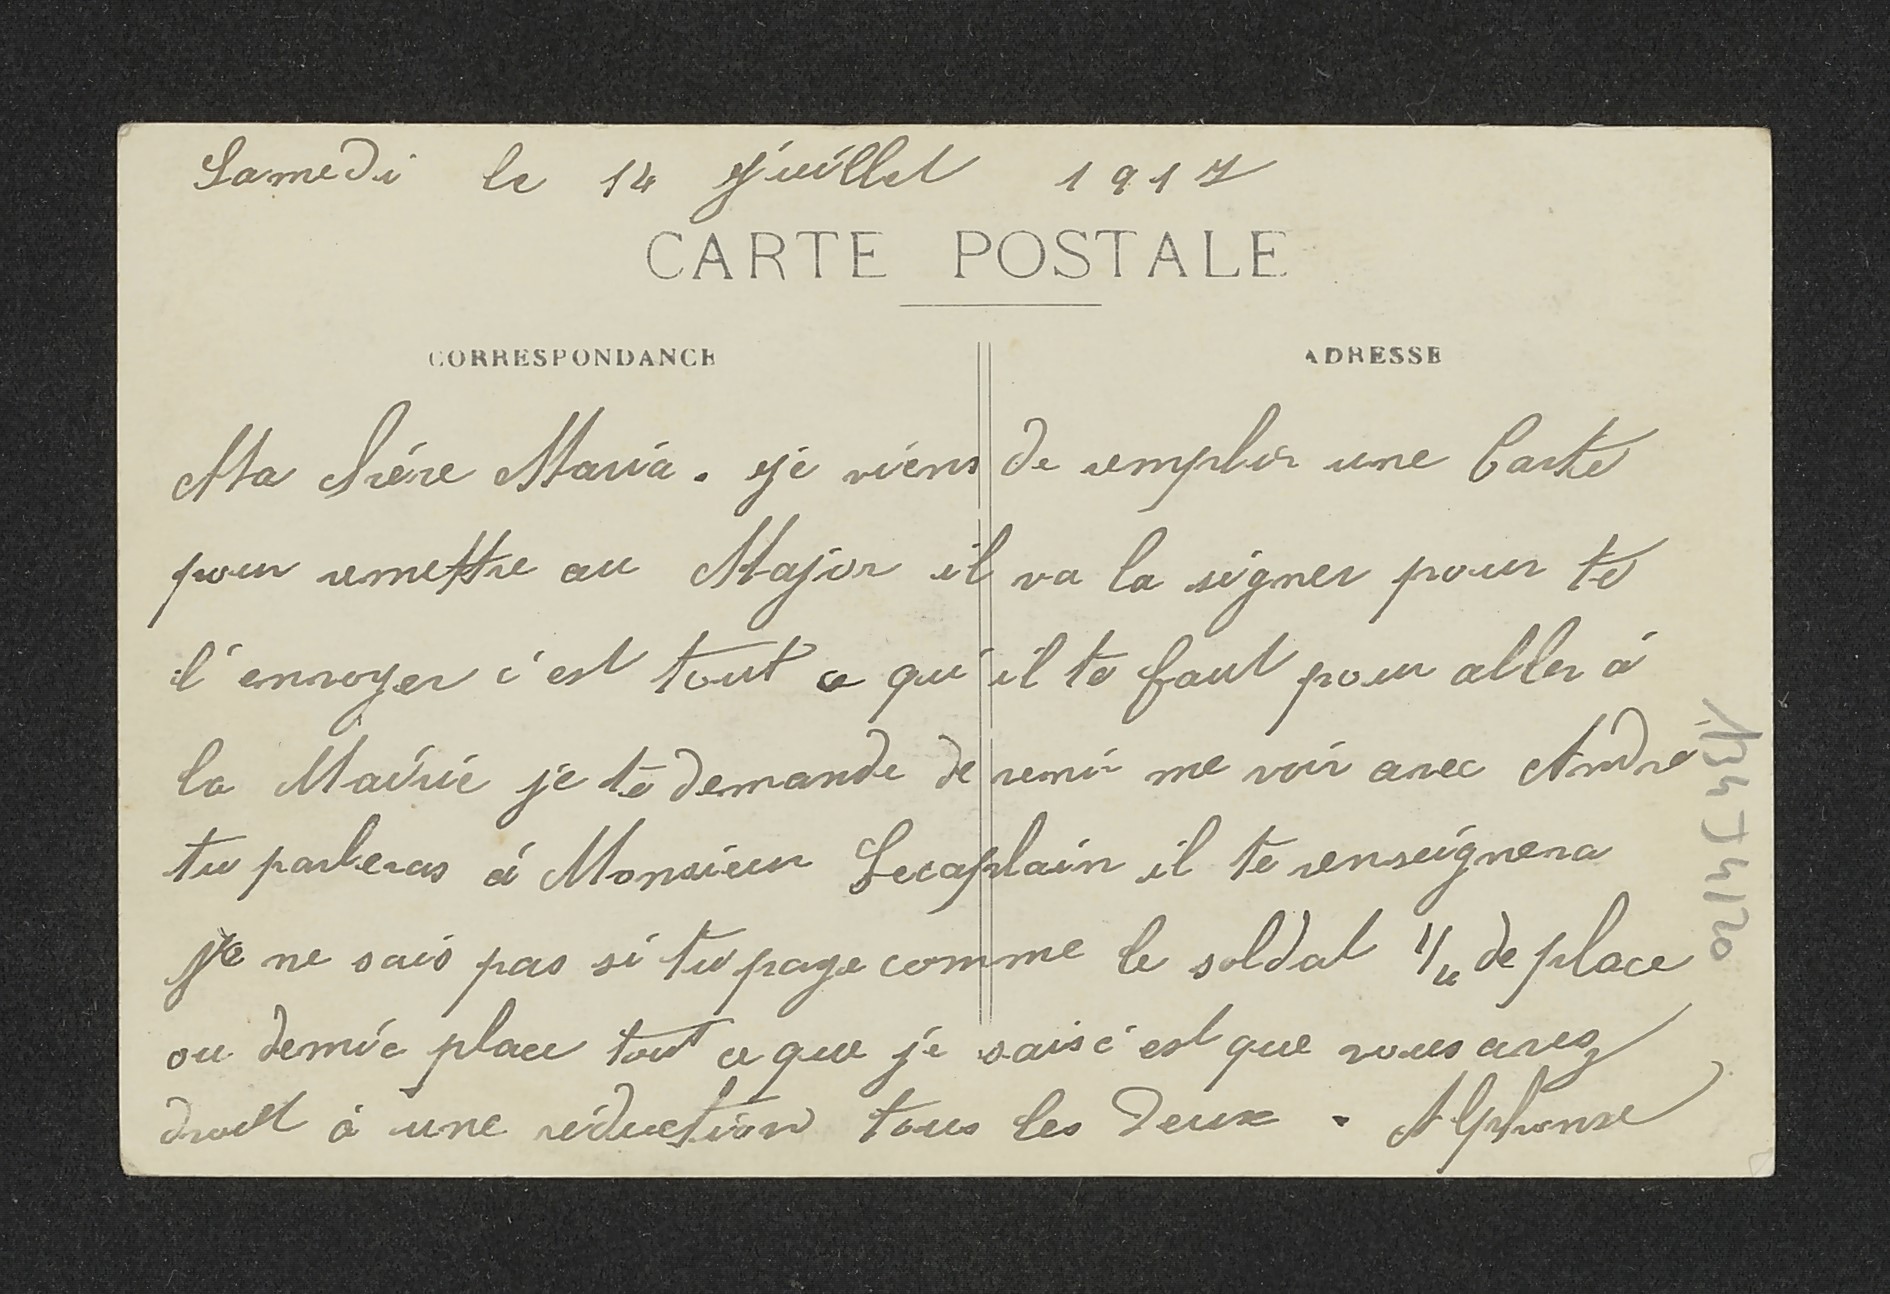 Samedi le 14 Juillet 1917
CARTE POSTALE
CORRESPONDANCE
ADRESSE
Ma Chére Maria. je viens de remplir une Carte
pour remettre au Major il va la signer pour te
l'envoyer c'est tout ce qu'il te faut pour aller á
la Mairie je te demande de venir me voir avec Andre
tu parleras á Monsieur Lecaplain il te renseignera
je ne sais pas si tu paye comme le soldat 1/4 de place
ou demie place tout ce que je sais c'est que vous avez
droit á une réduction tous les deux. Alphonse
1134 J 4120